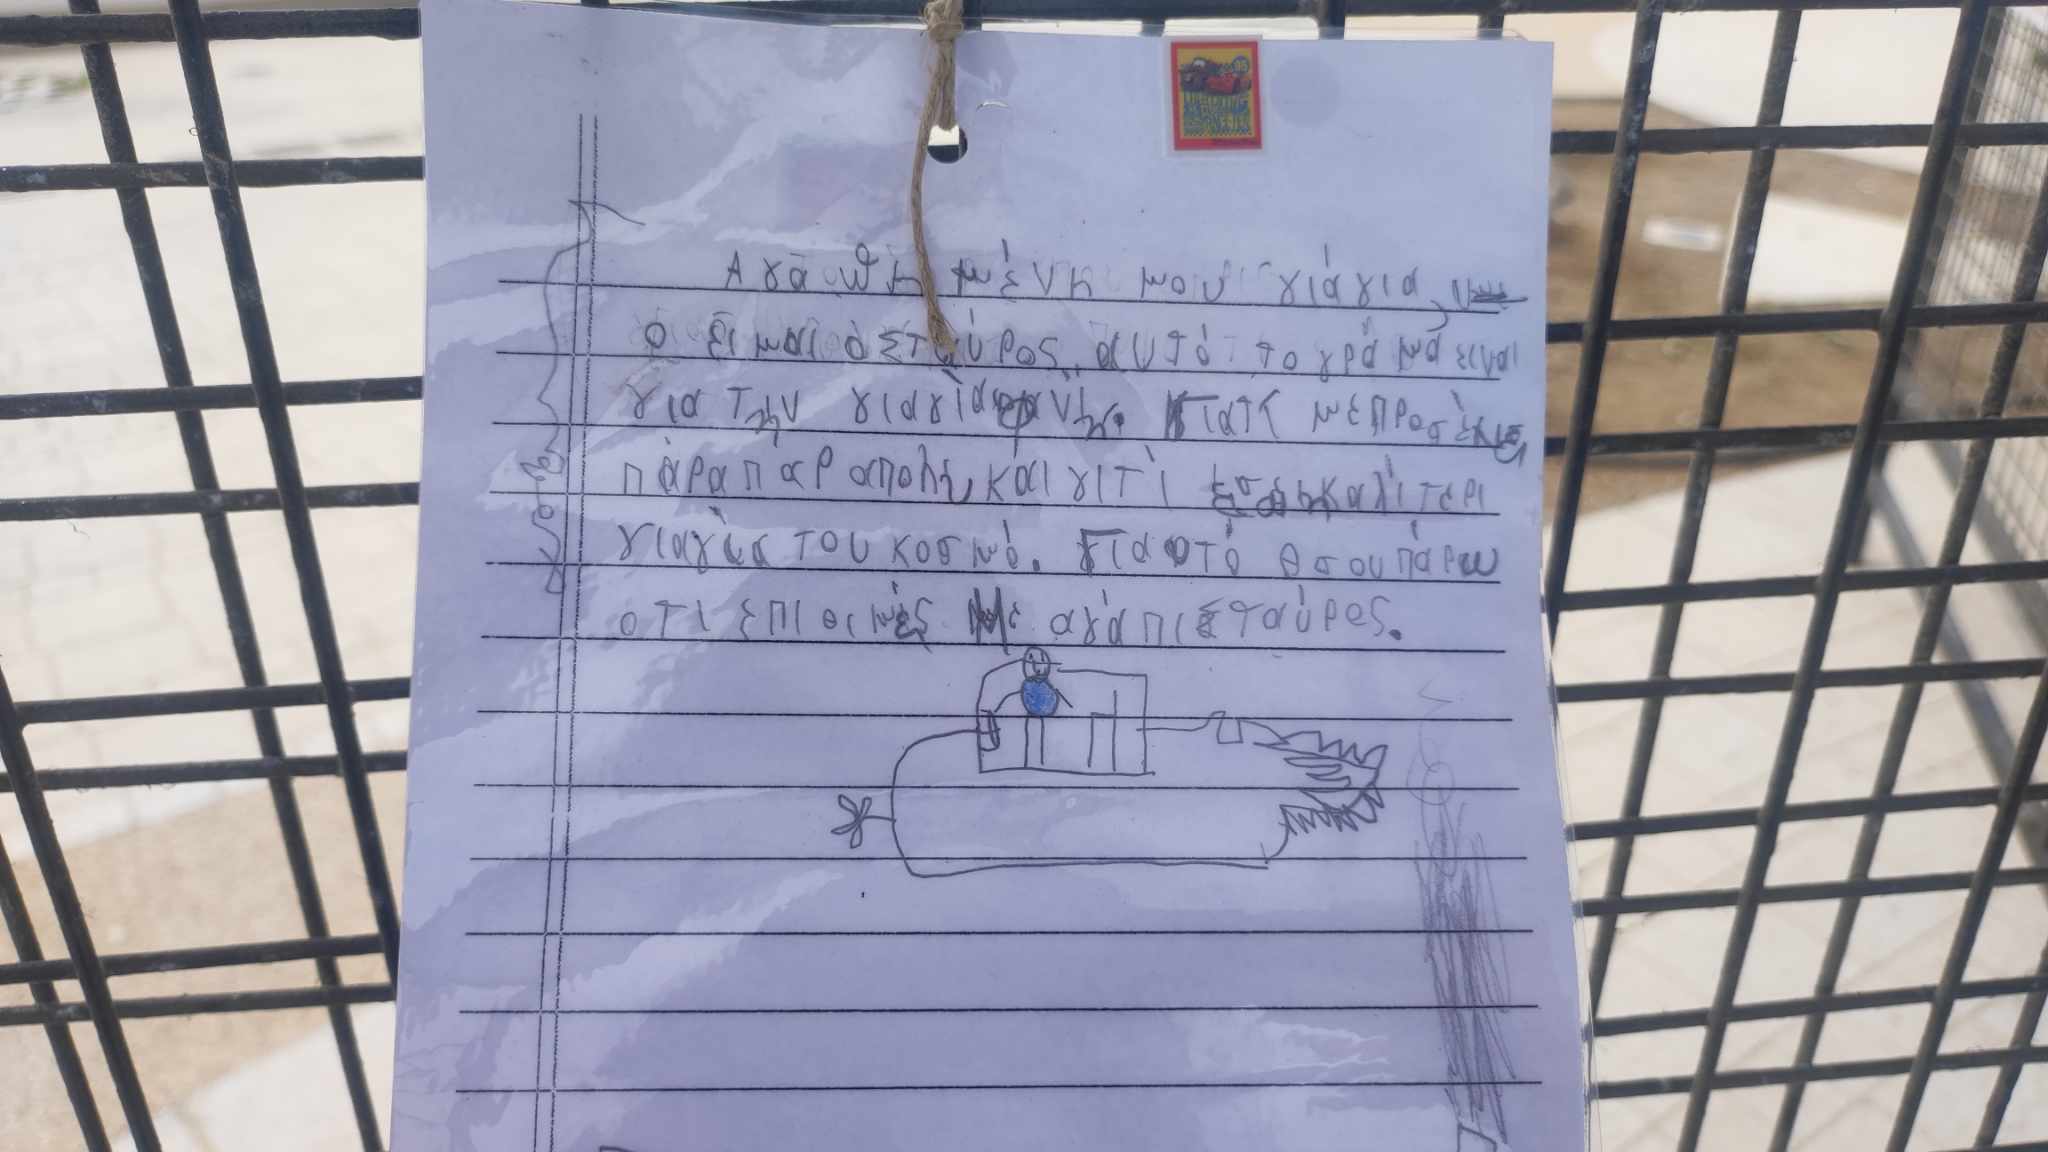 LIGHTNING
95
Αγάπη μένη μου γιάγια,
ο ειμαι ο Σταύρος. αυτό το γράμα είναι
για την γιαγιά φανή. Γιατί με προσέχις
πάρα πάρ απολη και γιτί εσε η καλίτερι
γιαγια του κοσμό. Γι αυτό θ σου πάρω
οτι επιθιμές Με αγάπι Σταύρος.